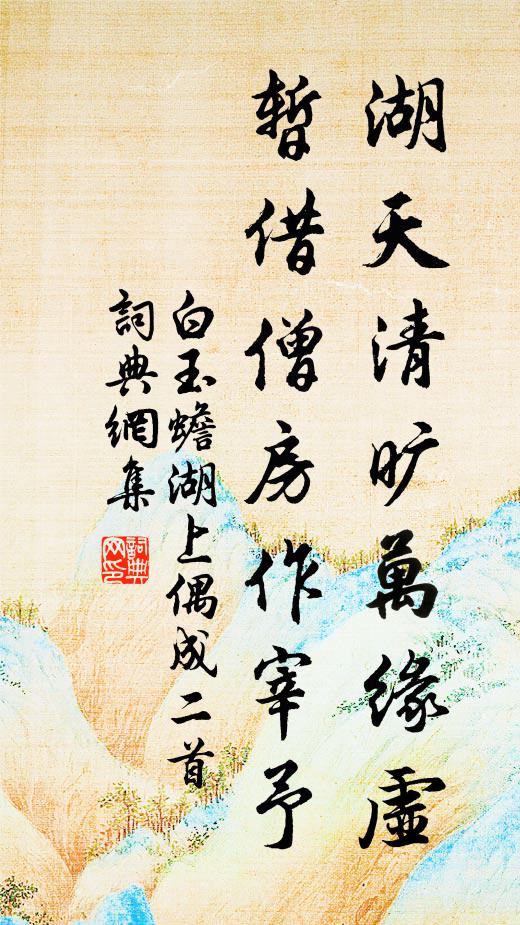 湖天清旷萬緣虛
暫借僧房作宰予
白玉蟾湖上偶成二首
詞典網集
詞典網印